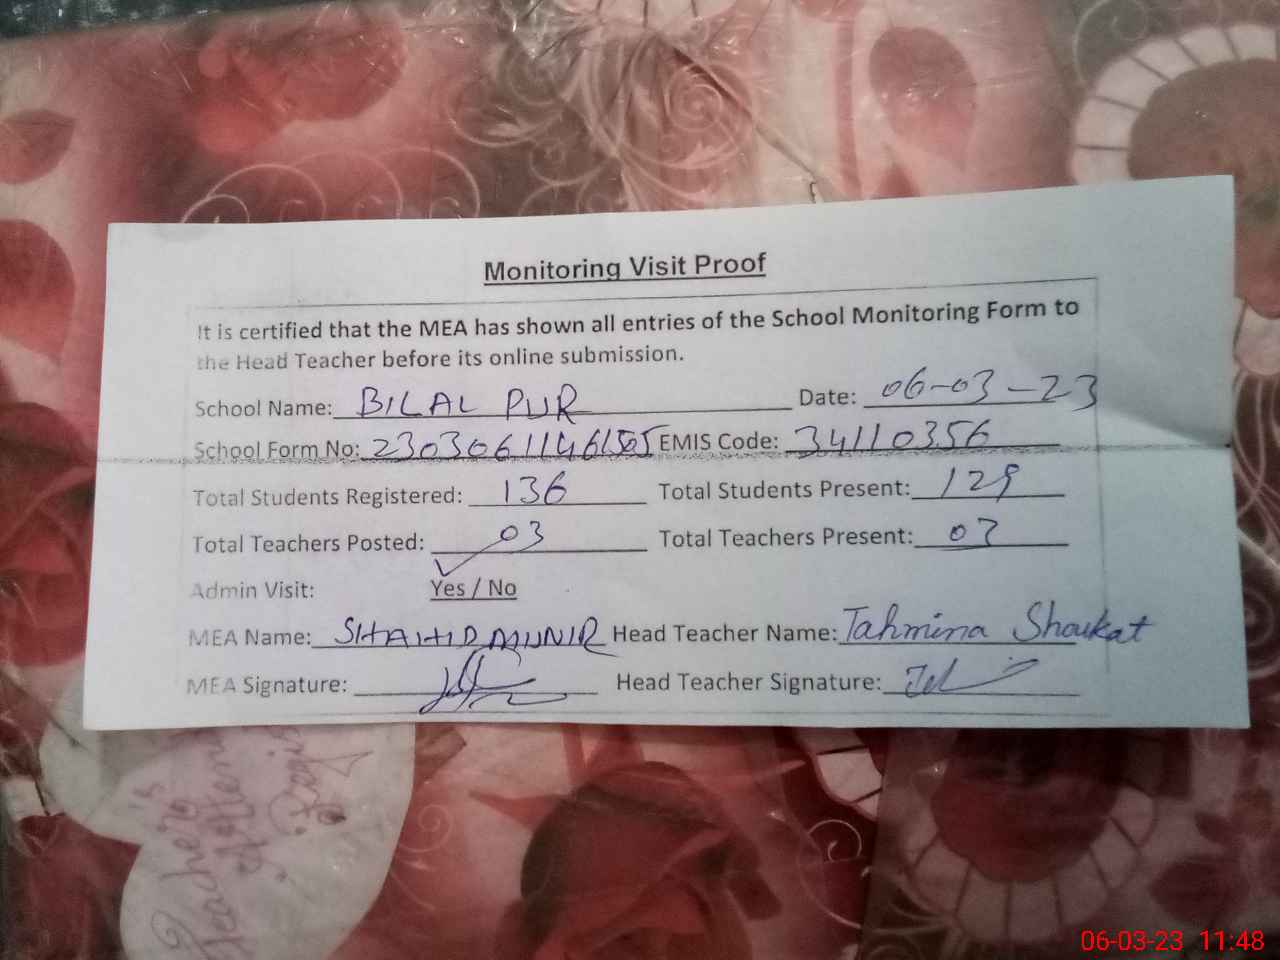 Monitoring Visit Proof
It is certified that the MEA has shown all entries of the School Monitoring Form to
the Head Teacher before its online submission.
School Name: BILAL PUR Date: 06-03-23
School Form No: EMIS Code: 34110356
Total Students Registered: 136 Total Students Present: 129
Total Teachers Posted: 03 Total Teachers Present: 03
Admin Visit: Yes / No
MEA Name: SHAHID MUNIR Head Teacher Name: Tahmina Shoukat
MEA Signature: Head Teacher Signature:
Teacher's
06-03-23 11:48